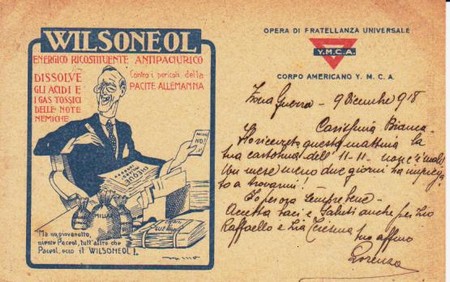 WILSONEOL
ENERGICO RICOSTITUENTE ANTIPACIURICO
DISSOLVE
GLI ACIDI E
I GAS TOSSICI
DELLE NOTE
NEMICHE
Contro i pericoli della
PACITE ALLEMANNA
NO!
MILIAR
Ma nuovamente,
nuovo Paceol, tutt'altro che
Paceol, ecco il WILSONEOL!
OPERA DI FRATELLANZA UNIVERSALE
Y.M.C.A.
CORPO AMERICANO Y. M. C. A.
Zona Guerra - 9 Dicembre 918
Carissima Bianca
Ho ricevuto questa mattina la
tua cartolina dell' 11-11 non c'è male!
Un mese meno due giorni ha impiegato
a trovarmi!
Io per ora sempre bene
Accetta baci e saluti anche per Zio
Raffaello e Zia tuo affmo
Lorenzo